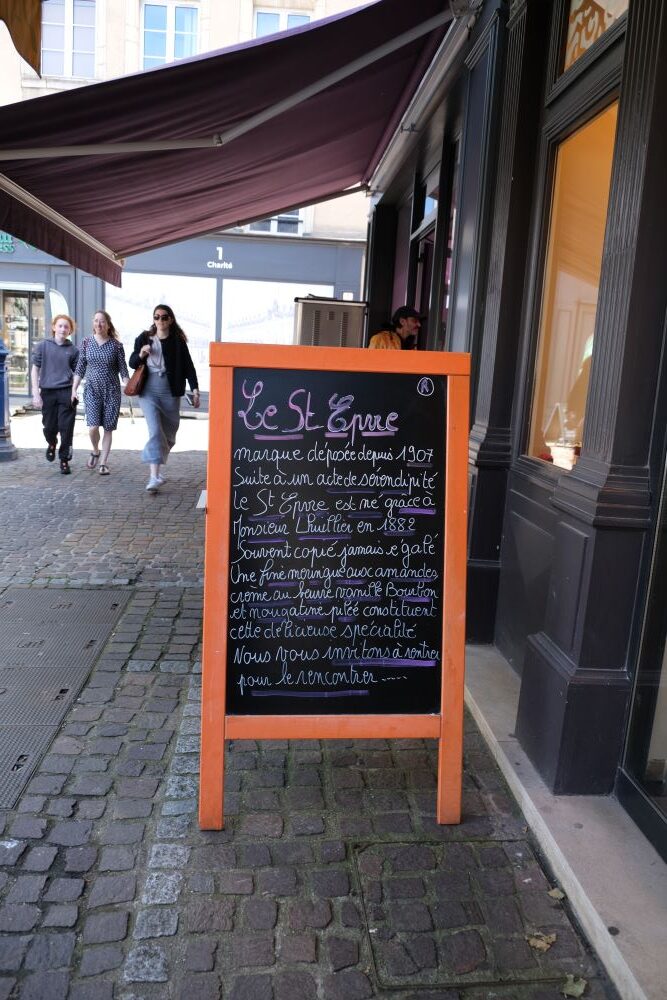 1
Charité
ESS
R
Le St Epvre
marque déposée depuis 1907
Suite à un acte de sérendipité
le St Epvre est né grâce à
Monsieur Lhuillier en 1882
Souvent copié jamais égalé
Une fine meringue aux amandes
creme au beurre vanille Bourbon
et nougatine pilée constituent
cette délicieuse spécialité
Nous vous invitons à rentrer
pour le rencontrer .....